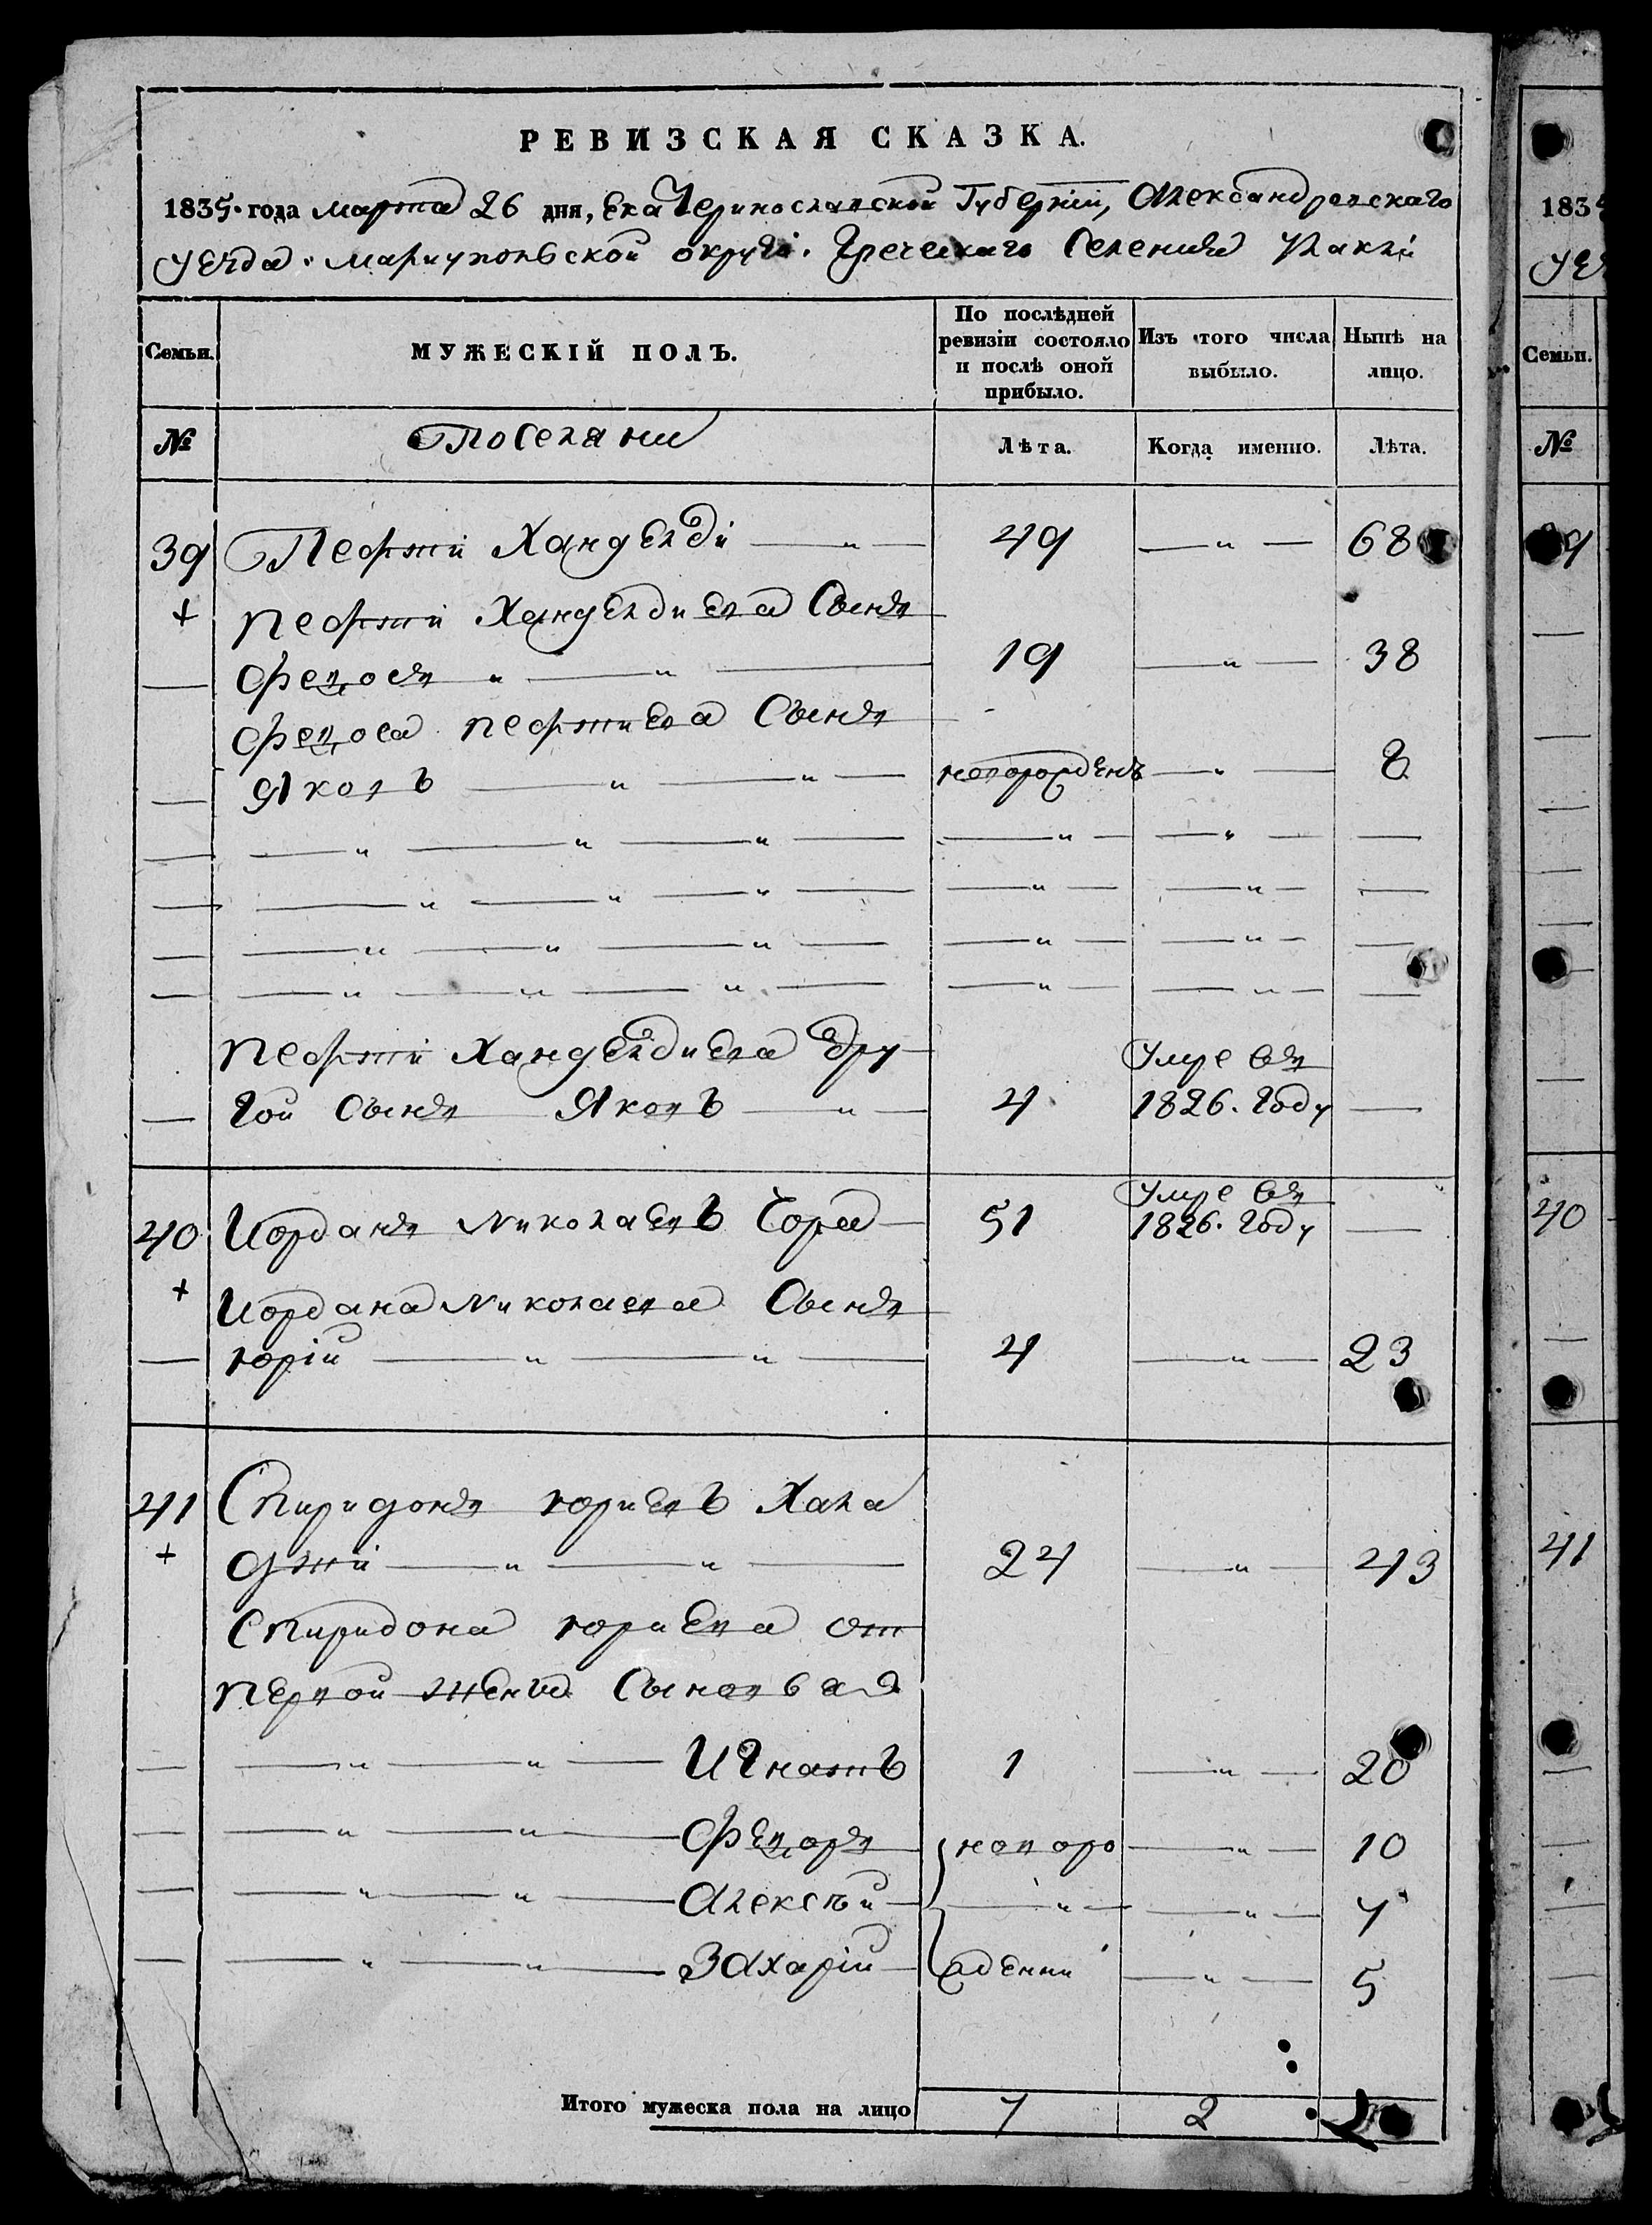 РЕВИЗСКАЯ СКАЗКА.
1835. года марта 26 дня, Екатеринославской Губерніи, Александровскаго
уезда. Мариупольской округи. Греческаго Селения Улаклі
Семьи.
МУЖЕСКІЙ ПОЛЪ.
По послѣдней ревизіи состояло и послѣ оной прибыло.
Изъ того числа выбыло.
Нынѣ на лицо.
№ Поселяни Лѣта. Когда именно. Лѣта.
39 Пефтій Хандеелді — „ — 49 — „ — 68
+ Пефтій Хандеелдиева Сынъ
— Федосъ „ — „ — 19 — „ — 38
Федоса Пефтиева Сынъ
— Яковъ — „ — „ — новорожденъ — „ — 8.
— — „ — „ — „ — — „ — — „ — —
— — „ — „ — „ — — „ — — „ — —
— — „ — „ — „ — — „ — — „ — —
— — „ — „ — „ — — „ — — „ — —
Пефтій Хандеелдиева дру Умре въ
— гой Сынъ Яковъ — „ — 4 1826. году —
Умре въ
40 Иорданъ Николаевъ Чора 51 1826. году —
+ Иордана Николаева Сынъ
— Юрій — „ — „ — 4 — „ — 23
41 Спиридонъ Юриевъ Хала
+ джи — „ — „ — 24 — „ — 43
Спиридона Юриева от
первой жены Сыновья
— — „ — „ — Игнатъ 1 — „ — 20
— — „ — „ — Федоръ новоро — „ — 10
— — „ — „ — Алексѣй — „ — — „ — 7
— — „ — „ — Захарій ждении — „ — 5
Итого мужеска пола на лицо 7 2
1835
Семьи.
№
40
41